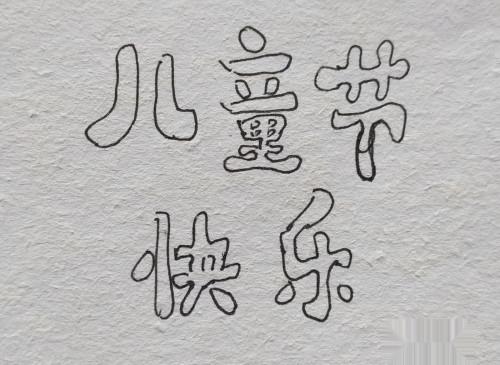 儿童节
快乐